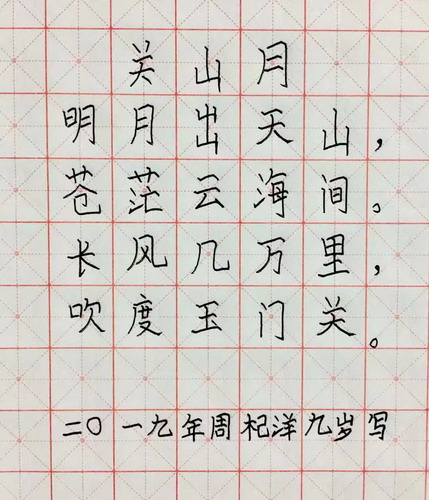 关山月
明月出天山，
苍茫云海间。
长风几万里，
吹度玉门关。
二〇一九年周杞洋九岁写